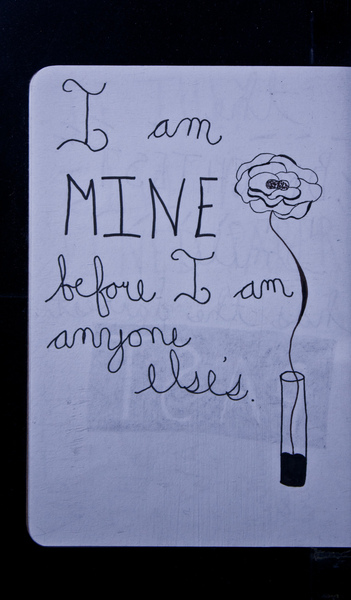 I am
MINE
before I am
anyone
else's.